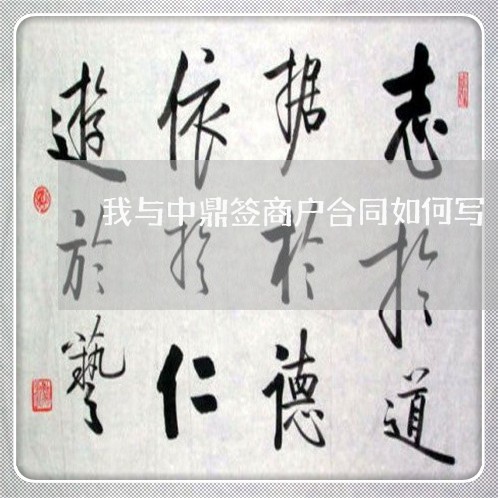 志於道
据於德
依於仁
遊於藝
我与中鼎签商户合同如何写